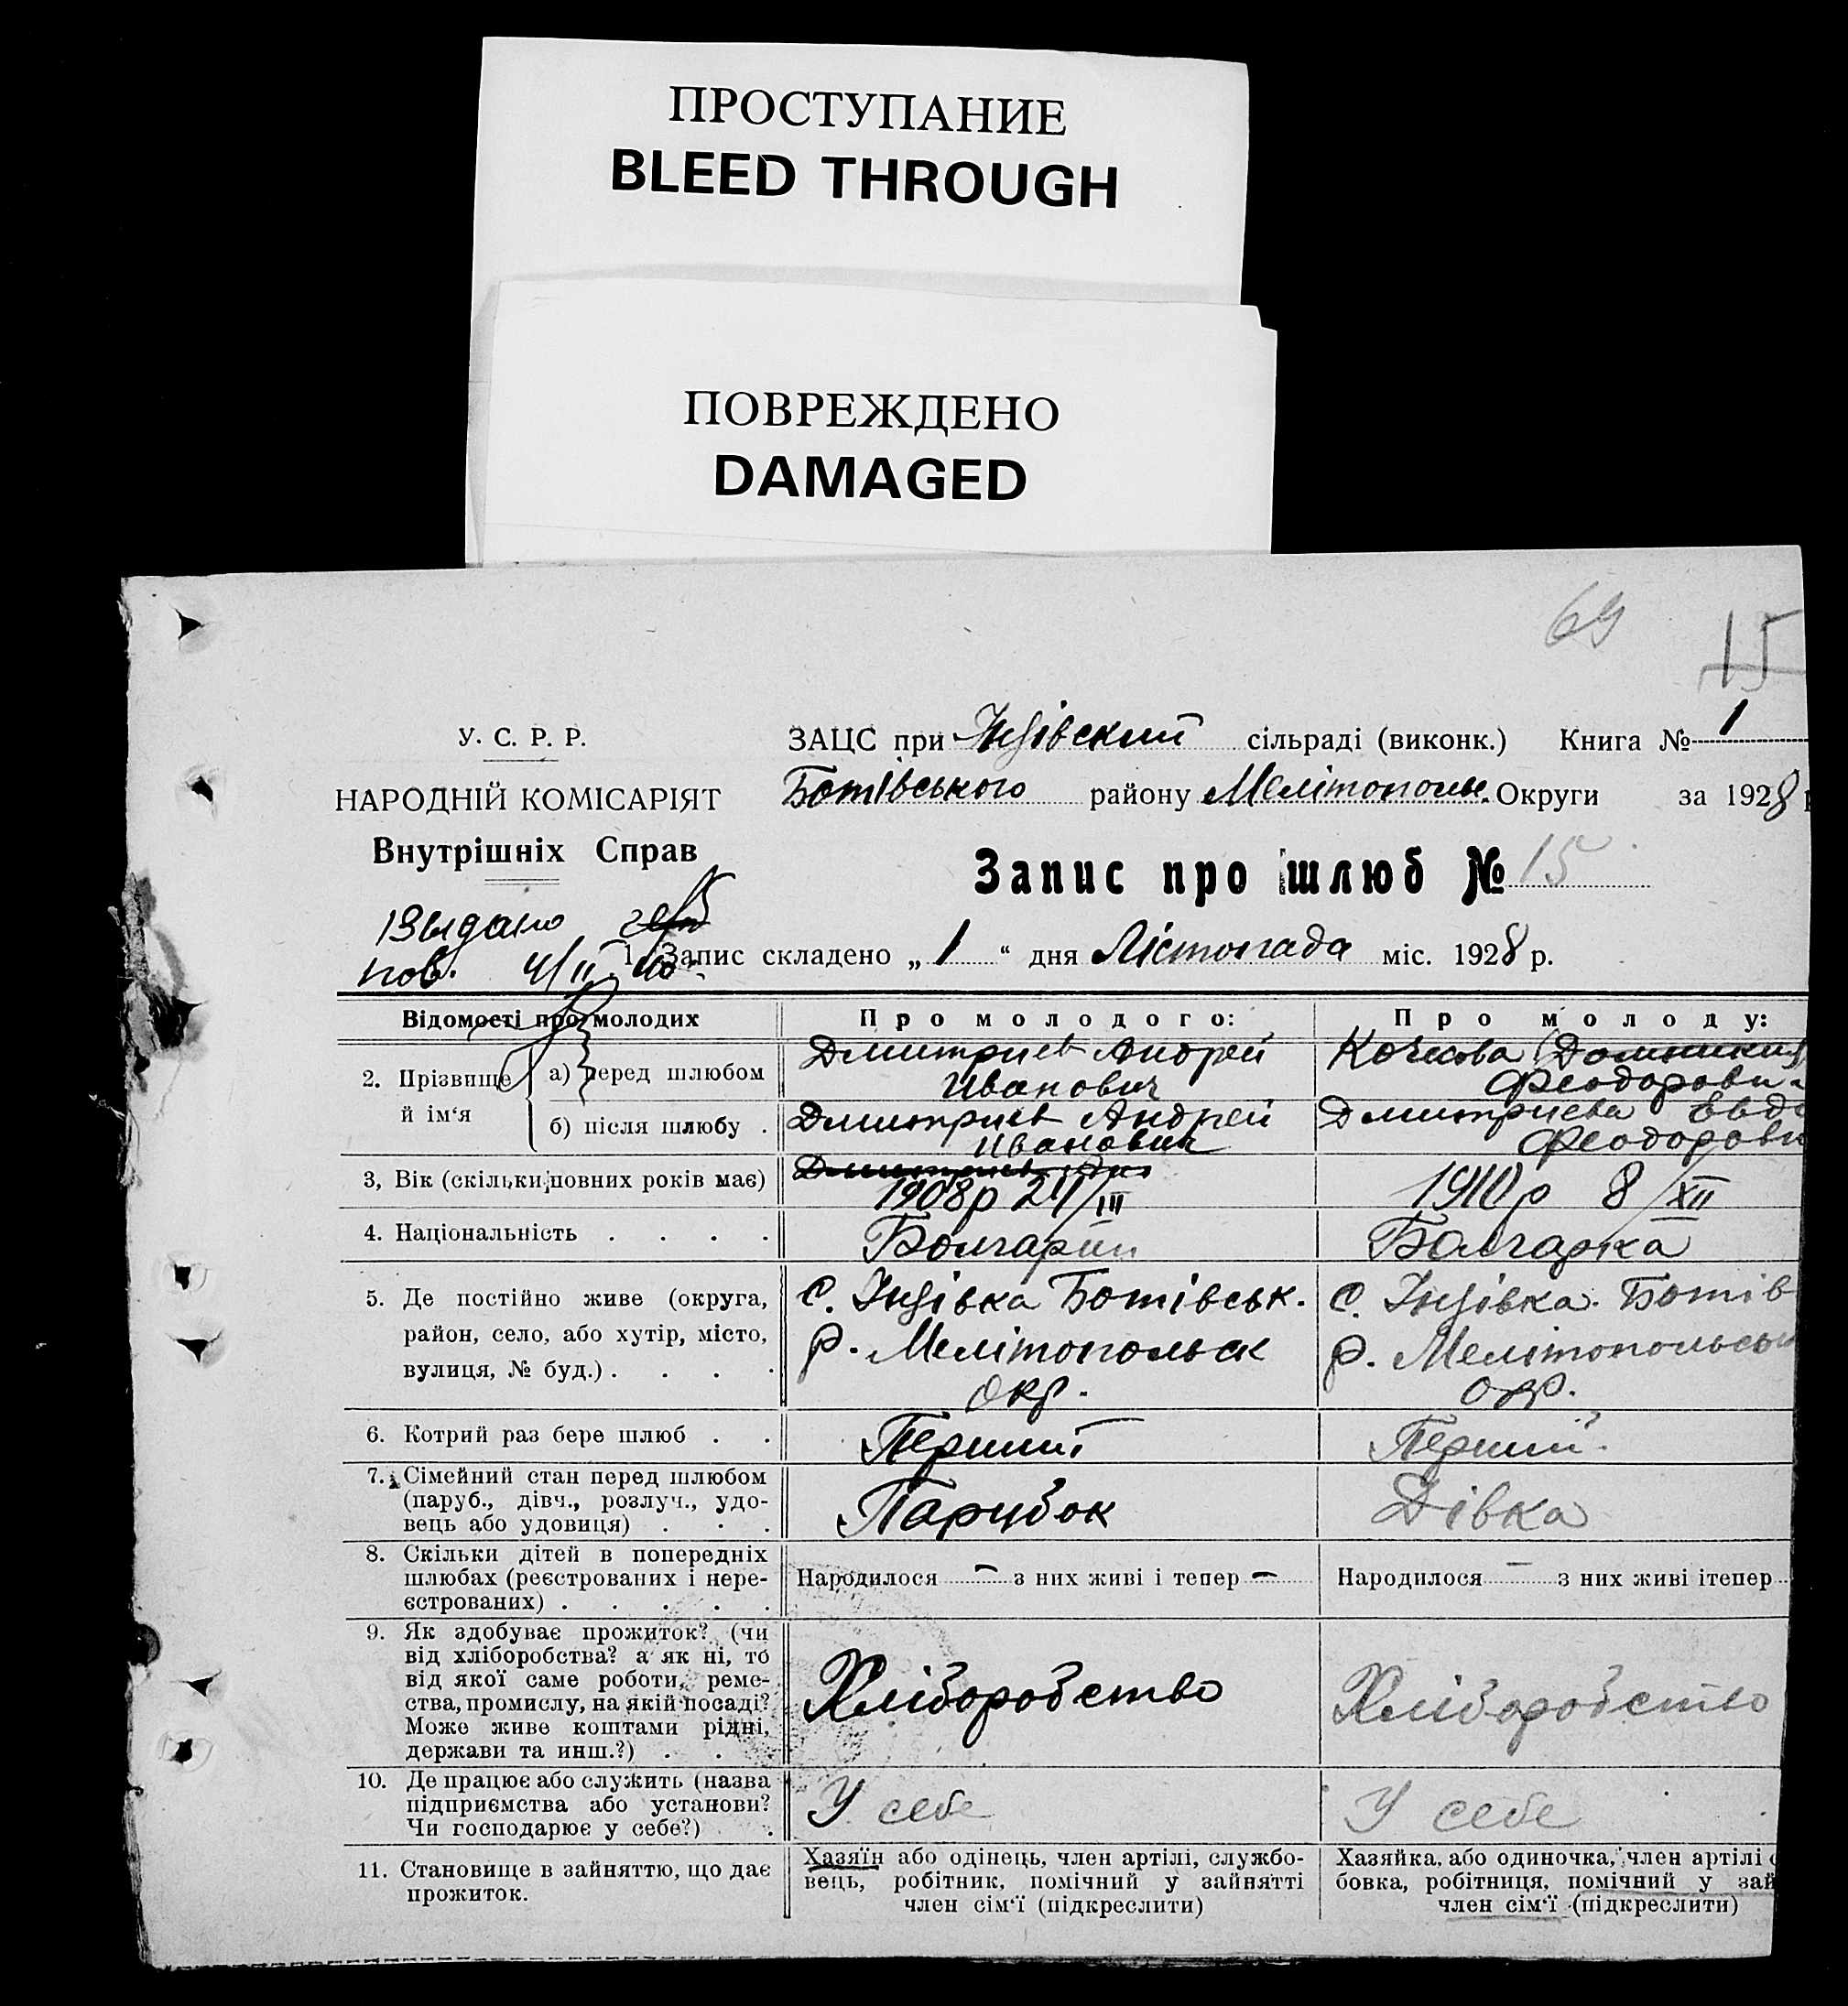 ПРОСТУПАНИЕ
BLEED THROUGH
ПОВРЕЖДЕНО
DAMAGED
69
15
У. С. Р. Р.
НАРОДНІЙ КОМІСАРІЯТ
Внутрішніх Справ
ЗАЦС при Інзівский сільраді (виконк.) Книга № 1
Ботівського району Мелітопольс. Округи за 1928 р
Запис про шлюб № 15
Выдано
пов. 4/II 40
1. Запис складено „ 1 “ дня Лістопада міс. 1928 р.
Відомості про молодих
Про молодого:
Про молоду:
2. Прізвище й ім‘я
а) перед шлюбом
Дмитриев Андрей
Иванович
Феодоров
б) після шлюбу .
Дмитриев Андрей
Иванович
Дмитриева Евд
Феодоров
3, Вік (скільки повних років має)
1908р 24/III
1910р 8/XII
4. Національність . . . .
Болгарин
Болгарка
5. Де постійно живе (округа,
район, село, або хутір, місто,
вулиця, № буд.) . . . .
с. Інзівка Ботівськ.
р. Мелітопольск
окр.
с. Інзівка. Ботів
р. Мелітопольськ
окр.
6. Котрий раз бере шлюб . .
Перший
Перший.
7. Сімейний стан перед шлюбом
(паруб., дівч., розлуч., удо-
вець або удовиця) . . .
Парубок
Дівка
8. Скільки дітей в попередніх
шлюбах (реєстрованих і нере-
єстрованих) . . . . .
Народилося – з них живі і тепер –
Народилося – з них живі ітепер
9. Як здобуває прожиток? (чи
від хліборобства? а як ні, то
від якої саме роботи, реме-
ства, промислу, на якій посаді?
Може живе коштами рідні,
держави та инш.?) . . .
Хліборобство
Хліборобство
10. Де працює або служить (назва
підприємства або установи?
Чи господарює у себе?) .
У себе
У себе
11. Становище в зайняттю, що дає
прожиток.
Хазяїн або одінець, член артілі, службо-
вець, робітник, помічний у зайнятті
член сім‘ї (підкреслити)
Хазяйка, або одиночка, член артілі
бовка, робітниця, помічний у зай
член сім‘ї (підкреслити)